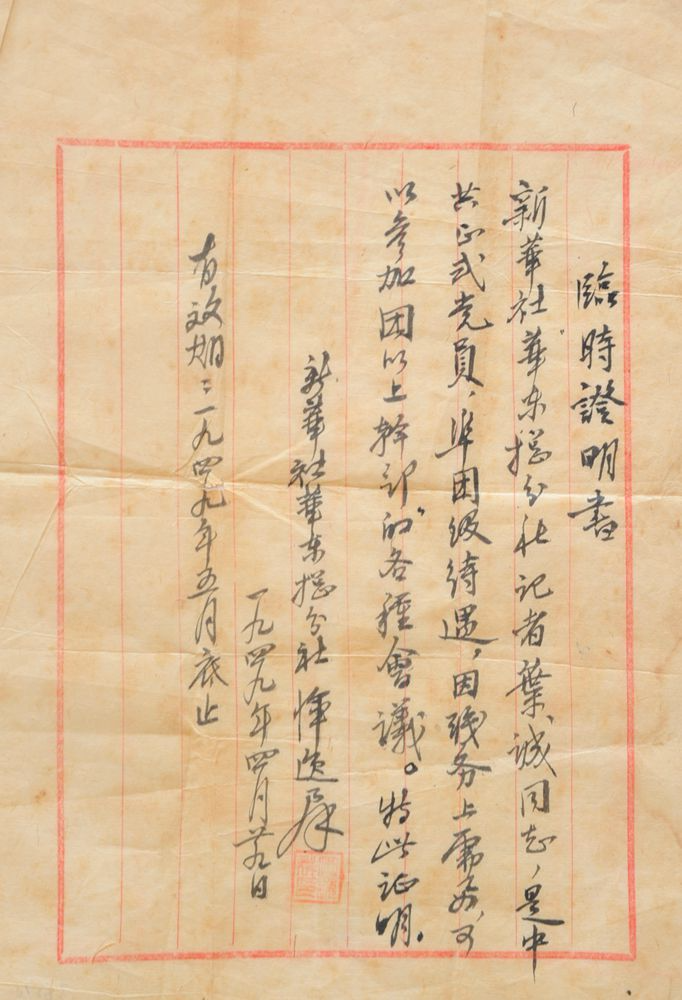 臨時證明書
新華社華东總分社记者葉诚同志，是中
共正式党員，準团级待遇，因职务上需要，可
以參加团以上幹部的各種會議。特此证明。
新華社華东總分社 惲逸羣
一九四九年四月廿九日
有效期：一九四九年五月底止